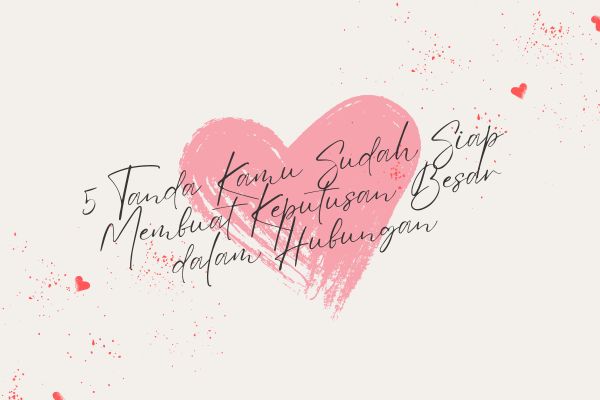 5 Tanda Kamu Sudah Siap
Membuat Keputusan Besar
dalam Hubungan